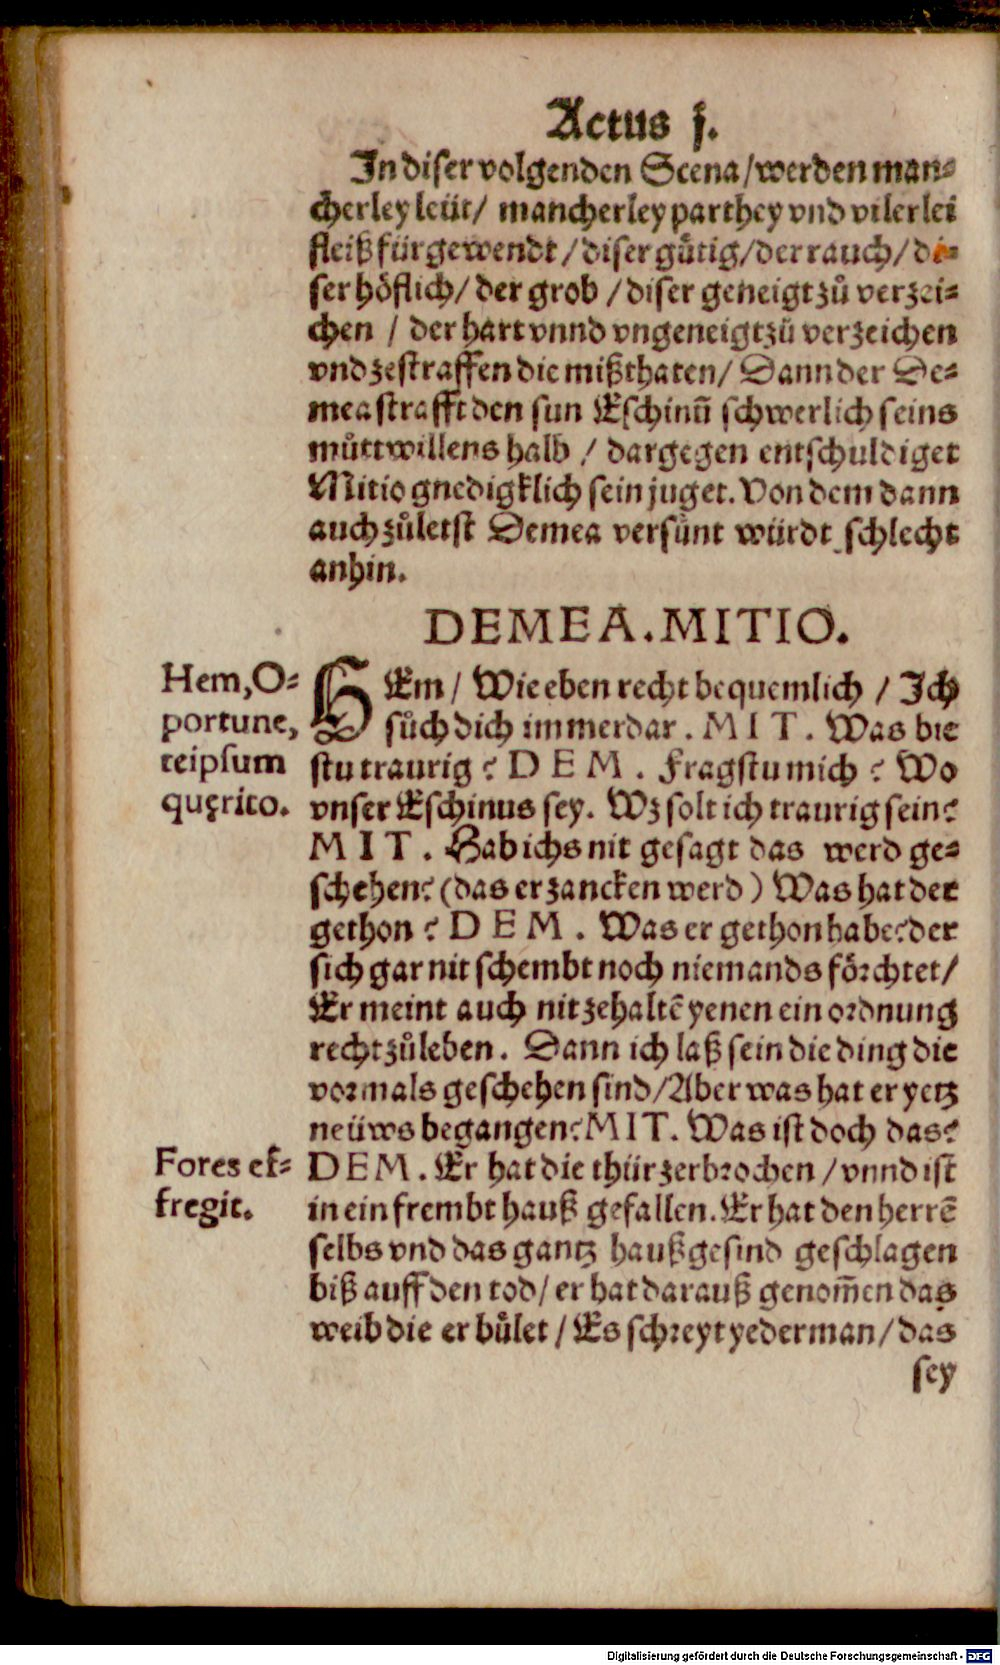 Actus j.
In diser volgenden Scena/werden man-
cherley leüt/ mancherley parthey vnd vilerlei
fleiß fürgewendt/diser gůtig/der rauch/di-
ser höflich/der grob/diser geneigt zů verzei-
chen / der hart vnnd vngeneigt zů verzeichen
vnd zestraffen die mißthaten/ Dann der De-
mea strafft den sun Eschinū schwerlich seins
můttwillens halb / dargegen entschuldiget
Mitio gnedigklich sein juget. Von dem dann
auch zůletst Demea versünt würdt schlecht
anhin.
DEMEA.MITIO.
Hem,O-
portune,
teipsum
quęrito.
HEm/ Wie eben recht bequemlich / Ich
sůch dich immerdar. MIT. Was bie
stu traurig? DEM. Fragstu mich? Wo
vnser Eschinus sey. Wz solt ich traurig sein?
MIT. Hab ichs nit gesagt das werd ge-
schehen? (das er zancken werd) Was hat der
gethon? DEM. Was er gethon habe? der
sich gar nit schembt noch niemands förchtet/
Er meint auch nit zehaltē yenen ein ordnung
recht zůleben. Dann ich laß sein die ding die
vormals geschehen sind/Aber was hat er yetz
neüws begangen? MIT. Was ist doch das?
Fores ef-
fregit.
DEM. Er hat die thür zerbrochen/vnnd ist
in ein frembt hauß gefallen. Er hat den herrē
selbs vnd das gantz haußgesind geschlagen
biß auff den tod/er hat darauß genom̄en das
weib die er bůlet/Es schreyt yederman/das
sey
Digitalisierung gefördert durch die Deutsche Forschungsgemeinschaft - DFG